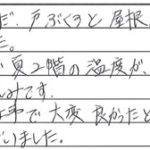 だ、戸ぶくろと屋根
た。
夏2階の温度が、
みです。
工事で大変良かったと
いました。